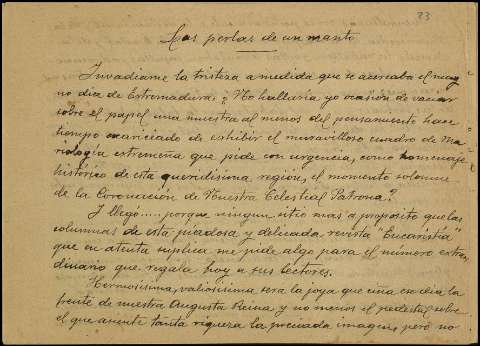 23
Las perlas de un manto
Invadíame la tristeza a medida que se acercaba el mag
no día de Extremadura. ¿No hallaría yo ocasión de vaciar
sobre el papel una muestra al menos del pensamiento hace
tiempo acariciado de exhibir el maravilloso cuadro de Ma
riología extremeña que pide con urgencia, como homenaje
histórico de esta queridísima región, el momento solemne
de la Coronación de Nuestra Celestial Patrona?
Y llegó.... porque ningun sitio mas a propósito que las
columnas de esta piadosa y delicada revista "Eucaristía"
que en atenta súplica me pide algo para el número extraor
dinario que regala hoy a sus lectores.
Hermosísima, valiosísima será la joya que ciña ese día la
frente de nuestra Augusta Reina y no menos el pedestal sobre
el que asiente tanta riqueza la preciada imagen, pero no